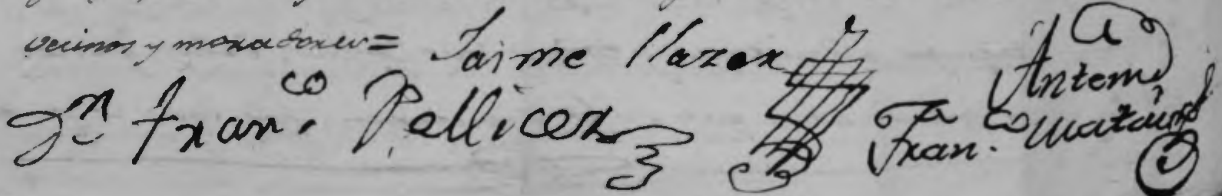 vecinos y moradores= Jaime Llazer
Dn Franco. Pellicer
Antemi
Franco.